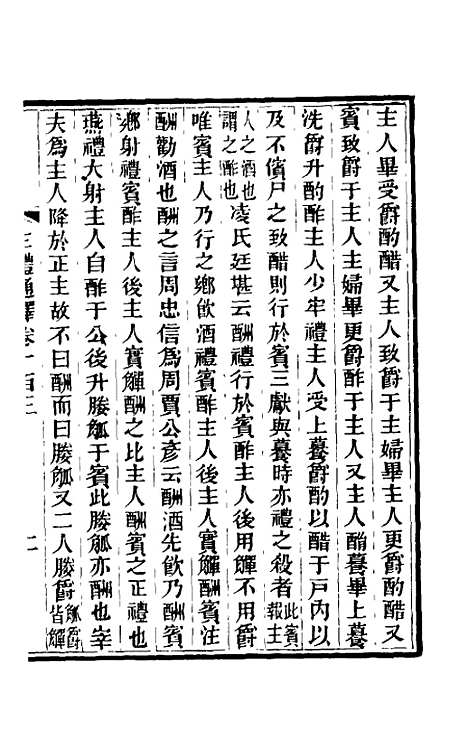 主人畢受爵酌醋又主人致爵于主婦畢主人更爵酌醋又
賓致爵于主人主婦畢更爵酢于主人又主人酳養畢上養
洗爵升酌酢主人少牢禮主人受上養爵酌以醋于戶內以
及不儐尸之致醋則行於賓三獻與養時亦禮之殺者此賓報主
人之酒也謂之酢也凌氏廷堪云酬禮行於賓酢主人後用觶不用爵
唯賓主人乃行之鄉飲酒禮賓酢主人後主人實觶酬賓注
酬勸酒也酬之言周忠信為周賈公彥云酬酒先飲乃酬賓
鄉射禮賓酢主人後主人實觶酬之此主人酬賓之正禮也
燕禮大射主人自酢于公後升媵觚于賓此媵觚亦酬也宰
夫為主人降於正主故不曰酬而曰媵觚又二人媵爵觚爵皆觶
三禮通釋卷一百三
二